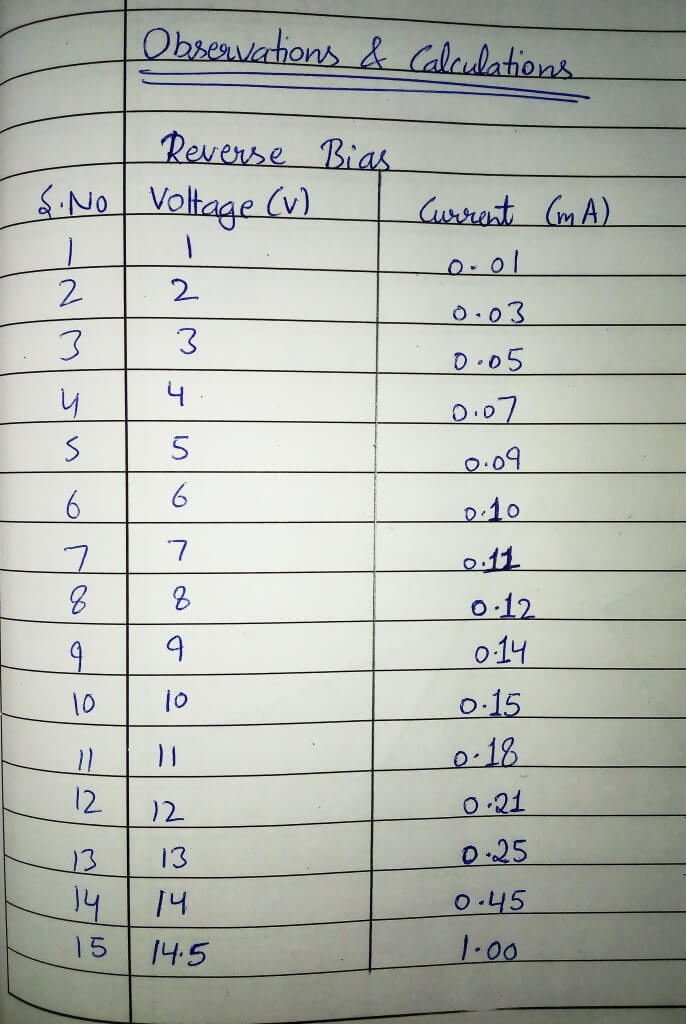 Observations & Calculations
Reverse Bias
S.No Voltage (V) Current (mA)
1 1 0.01
2 2 0.03
3 3 0.05
4 4 0.07
5 5 0.09
6 6 0.10
7 7 0.11
8 8 0.12
9 9 0.14
10 10 0.15
11 11 0.18
12 12 0.21
13 13 0.25
14 14 0.45
15 14.5 1.00